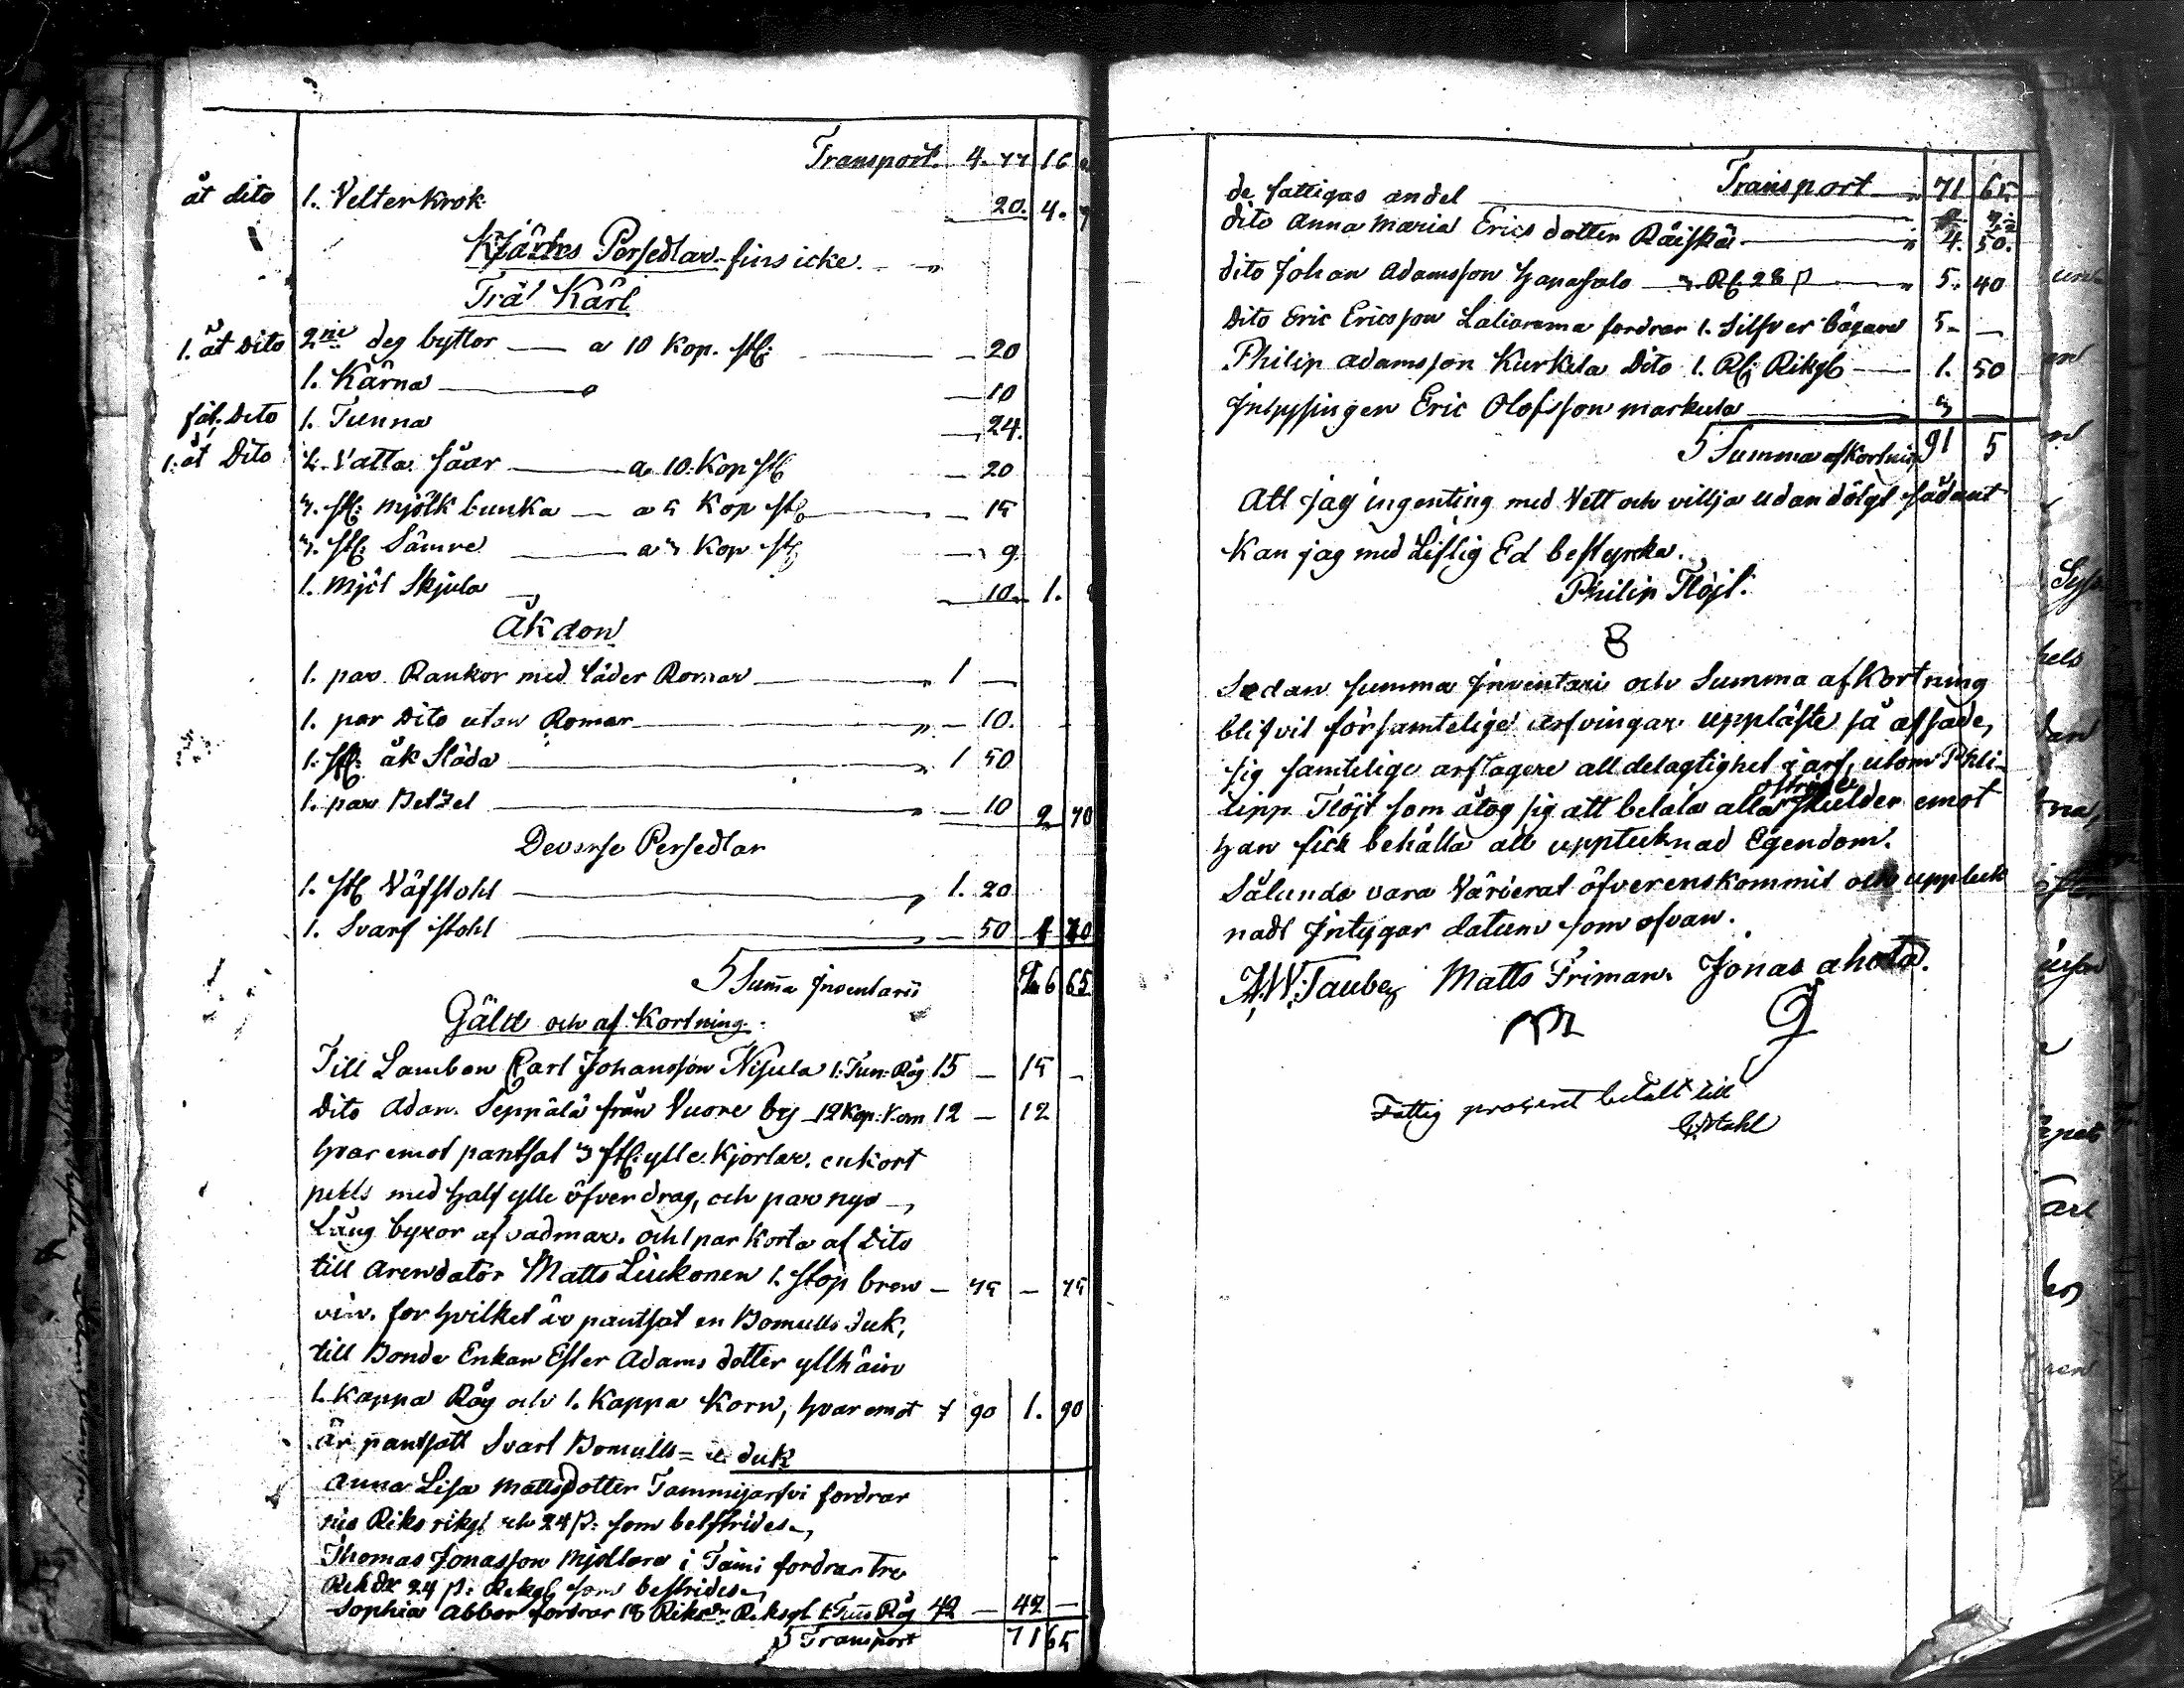 Transport. 4. 77 16
åt dito 1. Velterkrok 20. 4.
Kjärtes Persedlar fins icke
Trä Kärl
1. åt Dito 2ne deg byttor a 10 Kop. st: 20
1. Kärna 10
Dito 1. Tunna 24.
1. åt Dito 2. Vatta såar a 10. Kop st 20
3. st: mjölk bunka a 5 Kop st 15
3. st: Sämre a 3 Kop st 9
1. Mjöl Skjula 10 1.
Åkdon
1. par Rankor med läder Romar 1 —
1. par Dito utan Romar 10.
1. st: åk Släda 1 50
1. par Betzel 10 2 70
Deverse Persedlar
1. st Väfstohl 1. 20
1. Svarf stohl 50 1 70
Suma Inventarii 6 65
Gäld och af Kortning.
Till Lambon Carl Johansson Nisula 1. Tun: Råg 15 — 15 —
Dito Adam Seppälä från Vuore by 12 Kop: Korn 12 — 12
hvaremot pantsat 3 st: ylle Kjortlar, en kort
pells med half ylle öfverdrag, och par nya
Lång byxor af vadmar. och 1 par Korta af Dito
till Arendator Matts Liukonen 1. stop bren — 75 — 75
vin. for hvilket är pantsat en Bomulls duk,
till Bonde Enkan Ester Adams dotter yllhäin
1. Kappa Råg och 1. Kappa Korn, hvaremot 1 90 1. 90
är pantsatt Svart Bomulls= duk
Anna Lisa Mattsdotter Tammijarfvi fordrar
Riks rikgl och 24 ß: som bestrides
Thomas Jonasson Mjöllare i Taini fordrar tre
RikDr 24 ß: Rikgl som bestrides
Sophia Abbor fordrar 18 Riksdr Riksgl 1 Tun Råg 42 — 42 —
Transport 71 65
Transport 71 65
de fattigas andel
Dito Anna Maria Erics dotter Räiskä 4. 50.
Dito Johan Adamsson Hanasalo R 28 ß 5. 40
Dito Eric Ericsson Laliorama fordrar 1. Silfver bägare 5 —
Philip Adamsson Kurkela Dito 1. R: Rikgl 1. 50
Eric Olofsson markula 3 —
Summa afkortning 91 5
Att jag ingenting med Vett och villja udandölgt sådant
Kan jag med Liflig Ed bestyrka.
Philip Flöjt.
Sedan summa Inventari och Summa afkortning
blifvit församtelige arfvingar uppläste så afsade,
sig samtelige arftagare all delagtighet i arf, utom Phli=
lipp Flöjt som åtog sig att betala alla skulder emot
han fick behålla all uppteknad Egendom.
Sålunda vara Värierat öfverenskommit och uppteck
nadt Intygar datum som ofvan.
A.W. Tauber Matts Friman. Jonas ahota.
Fattig procent betalt till
Stahl